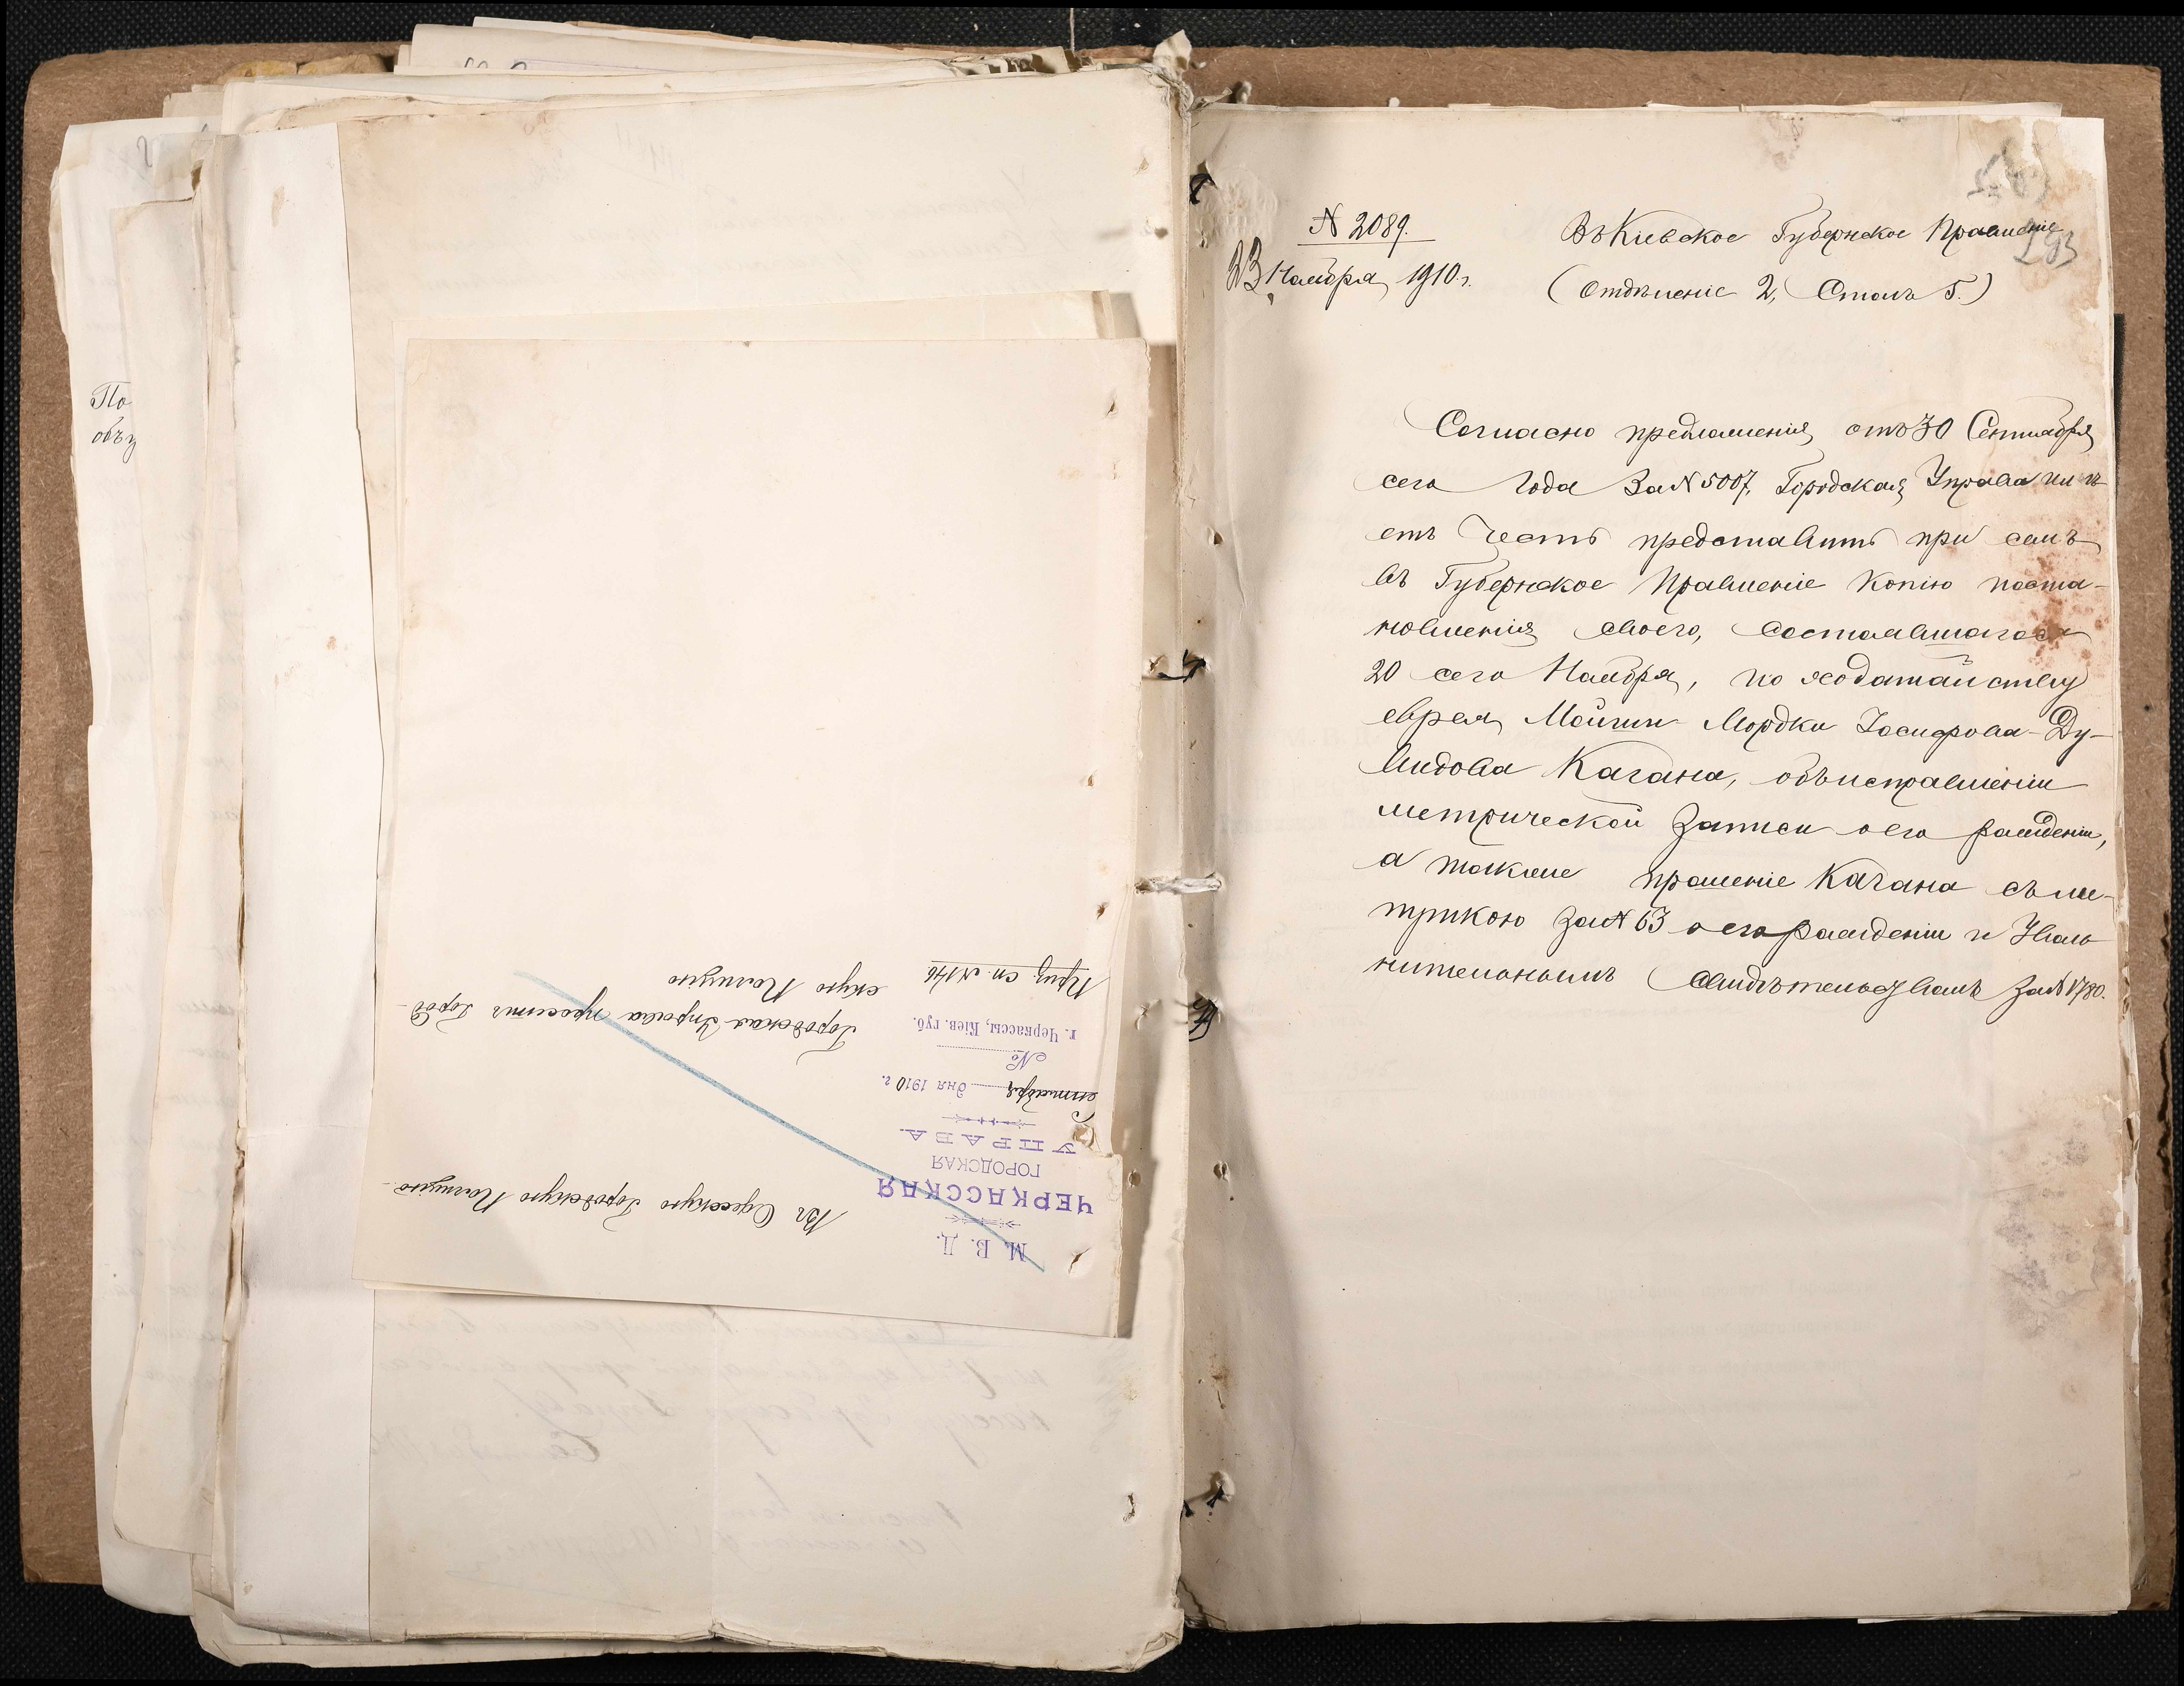 По
объ
М. В. Д.
ЧЕРКАССКАЯ
ГОРОДСКАЯ
УПРАВА.
Сентября дня 1910 г.
№
г. Черкассы, Кіев. губ.
Приз. сп. №146
Въ Одесскую Городскую Полицію
Городская Управа проситъ Город-
скую Полицію
№ 2089.
23 Ноября 1910 г.
Въ Кіевское Губернское Правленіе
(Отдѣленіе 2, Столъ 5.)
283
Согласно предложенія, отъ 30 Сентября
сего года за № 5007, Городская Управа имѣ-
етъ честь представить при семъ
въ Губернское Правленіе копію поста-
новленія своего, состоявшагося
20 сего Ноября, по ходатайству
еврея Мойши-Мордки Іосифова-Ду-
видова Кагана, объ исправленіи
метрической записи о его рожденіи,
а также прошеніе Кагана съ ме-
трикою за № 63 о его рожденіи и Уволь-
нительнымъ Свидѣтельствомъ за № 1780.